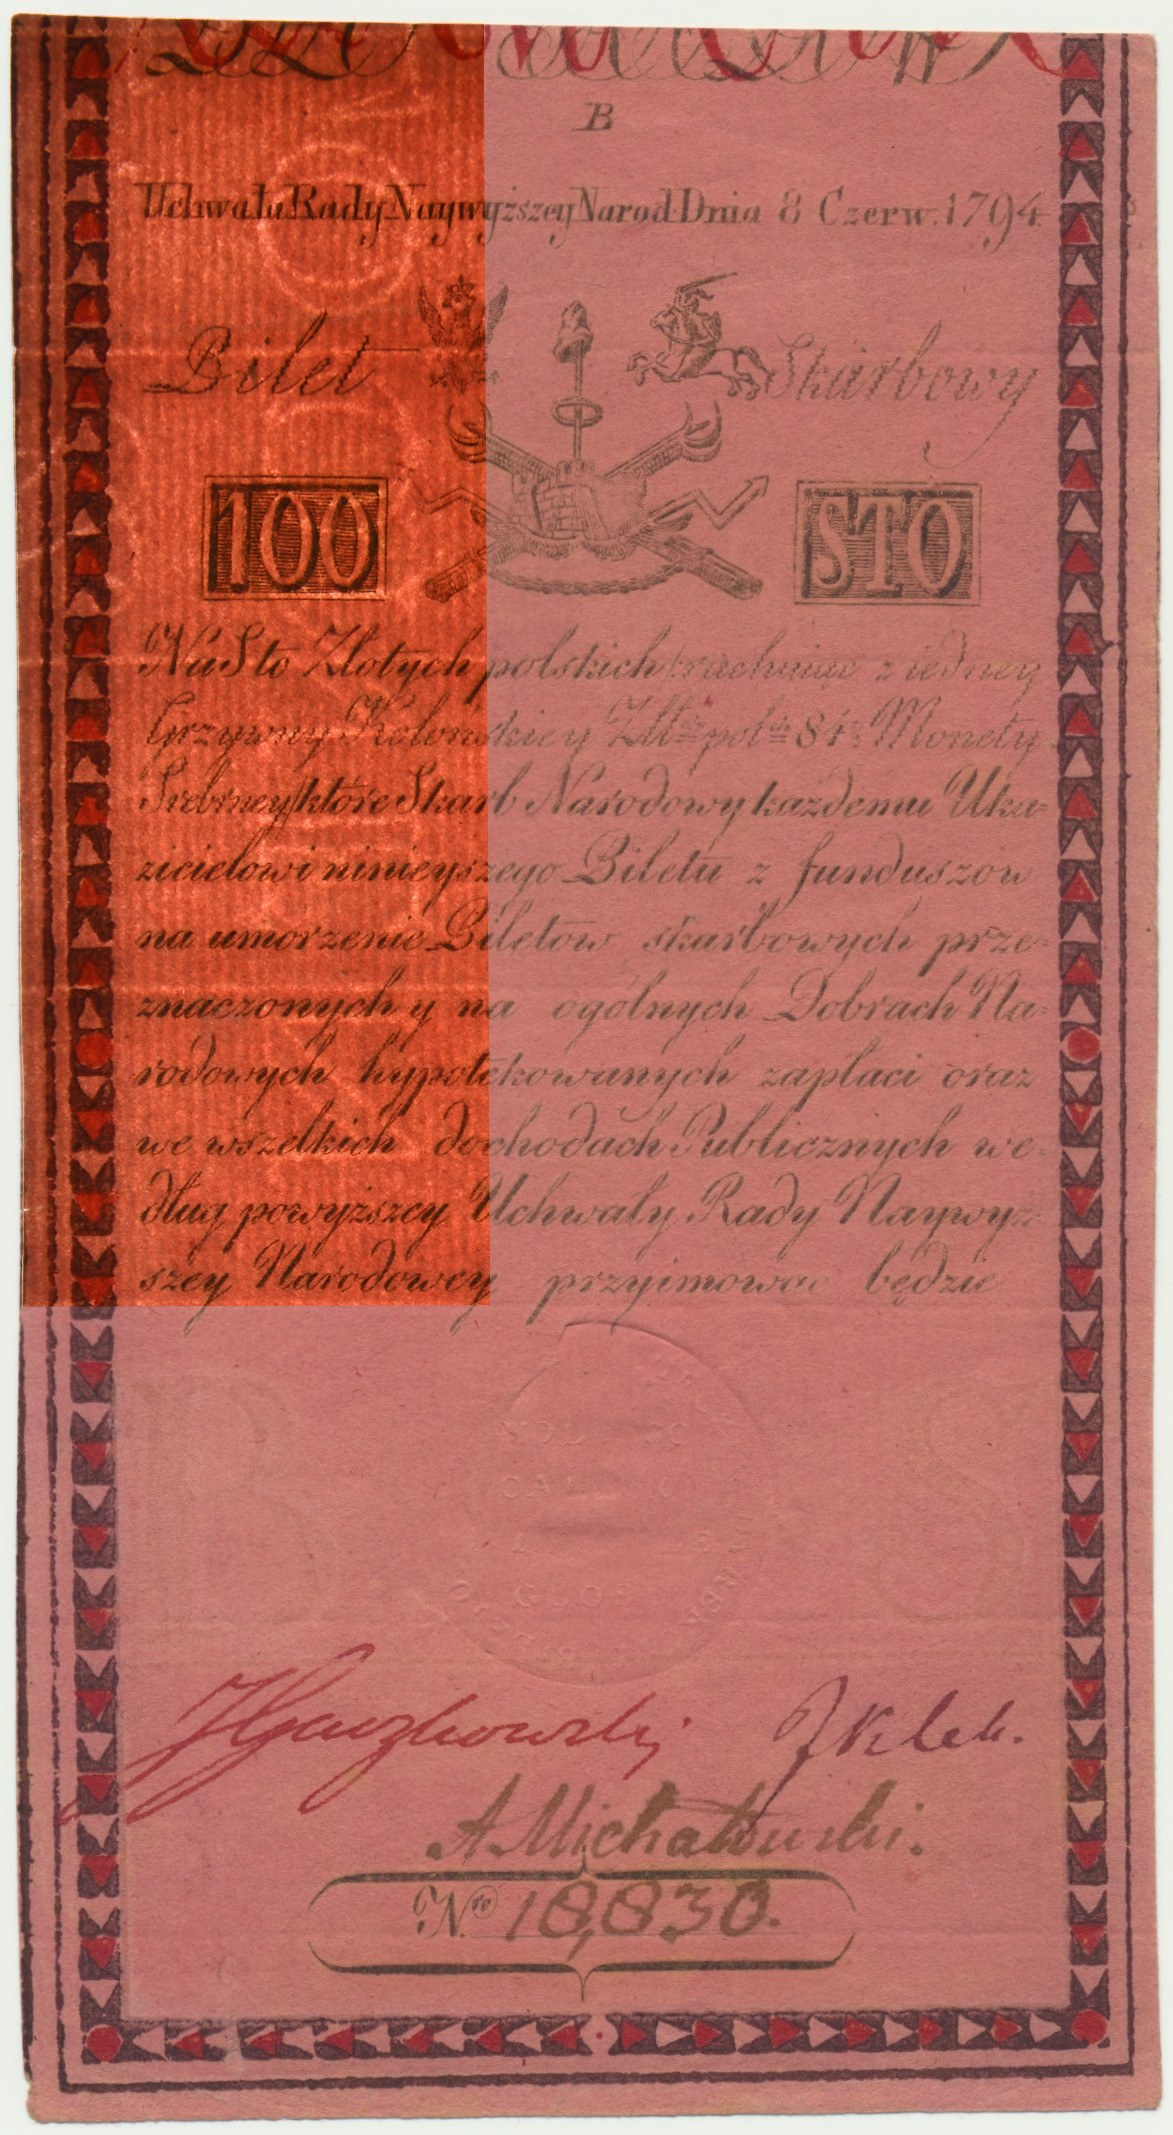 B
Uchwałą Rady Naywyższey Narod: Dnia 8 Czerw: 1794.
Bilet Skarbowy
100 STO
Na Sto Złotych polskich rachuiąc z iedney
Grzywny Kolońskiey Zll: pol: 84½ Monety
Srebrney które Skarb Narodowy każdemu Uka-
zicielowi ninieyszego Biletu z funduszow
na umorzenie Biletow skarbowych prze-
znaczonych y na ogólnych Dobrach Na-
rodowych hypotekowanych zapłaci oraz
we wszelkich dochodach Publicznych we-
dług powyższey Uchwały Rady Naywyż-
szey Narodowey przyimować będzie
B S
A Michałowski.
Nro 18,830.